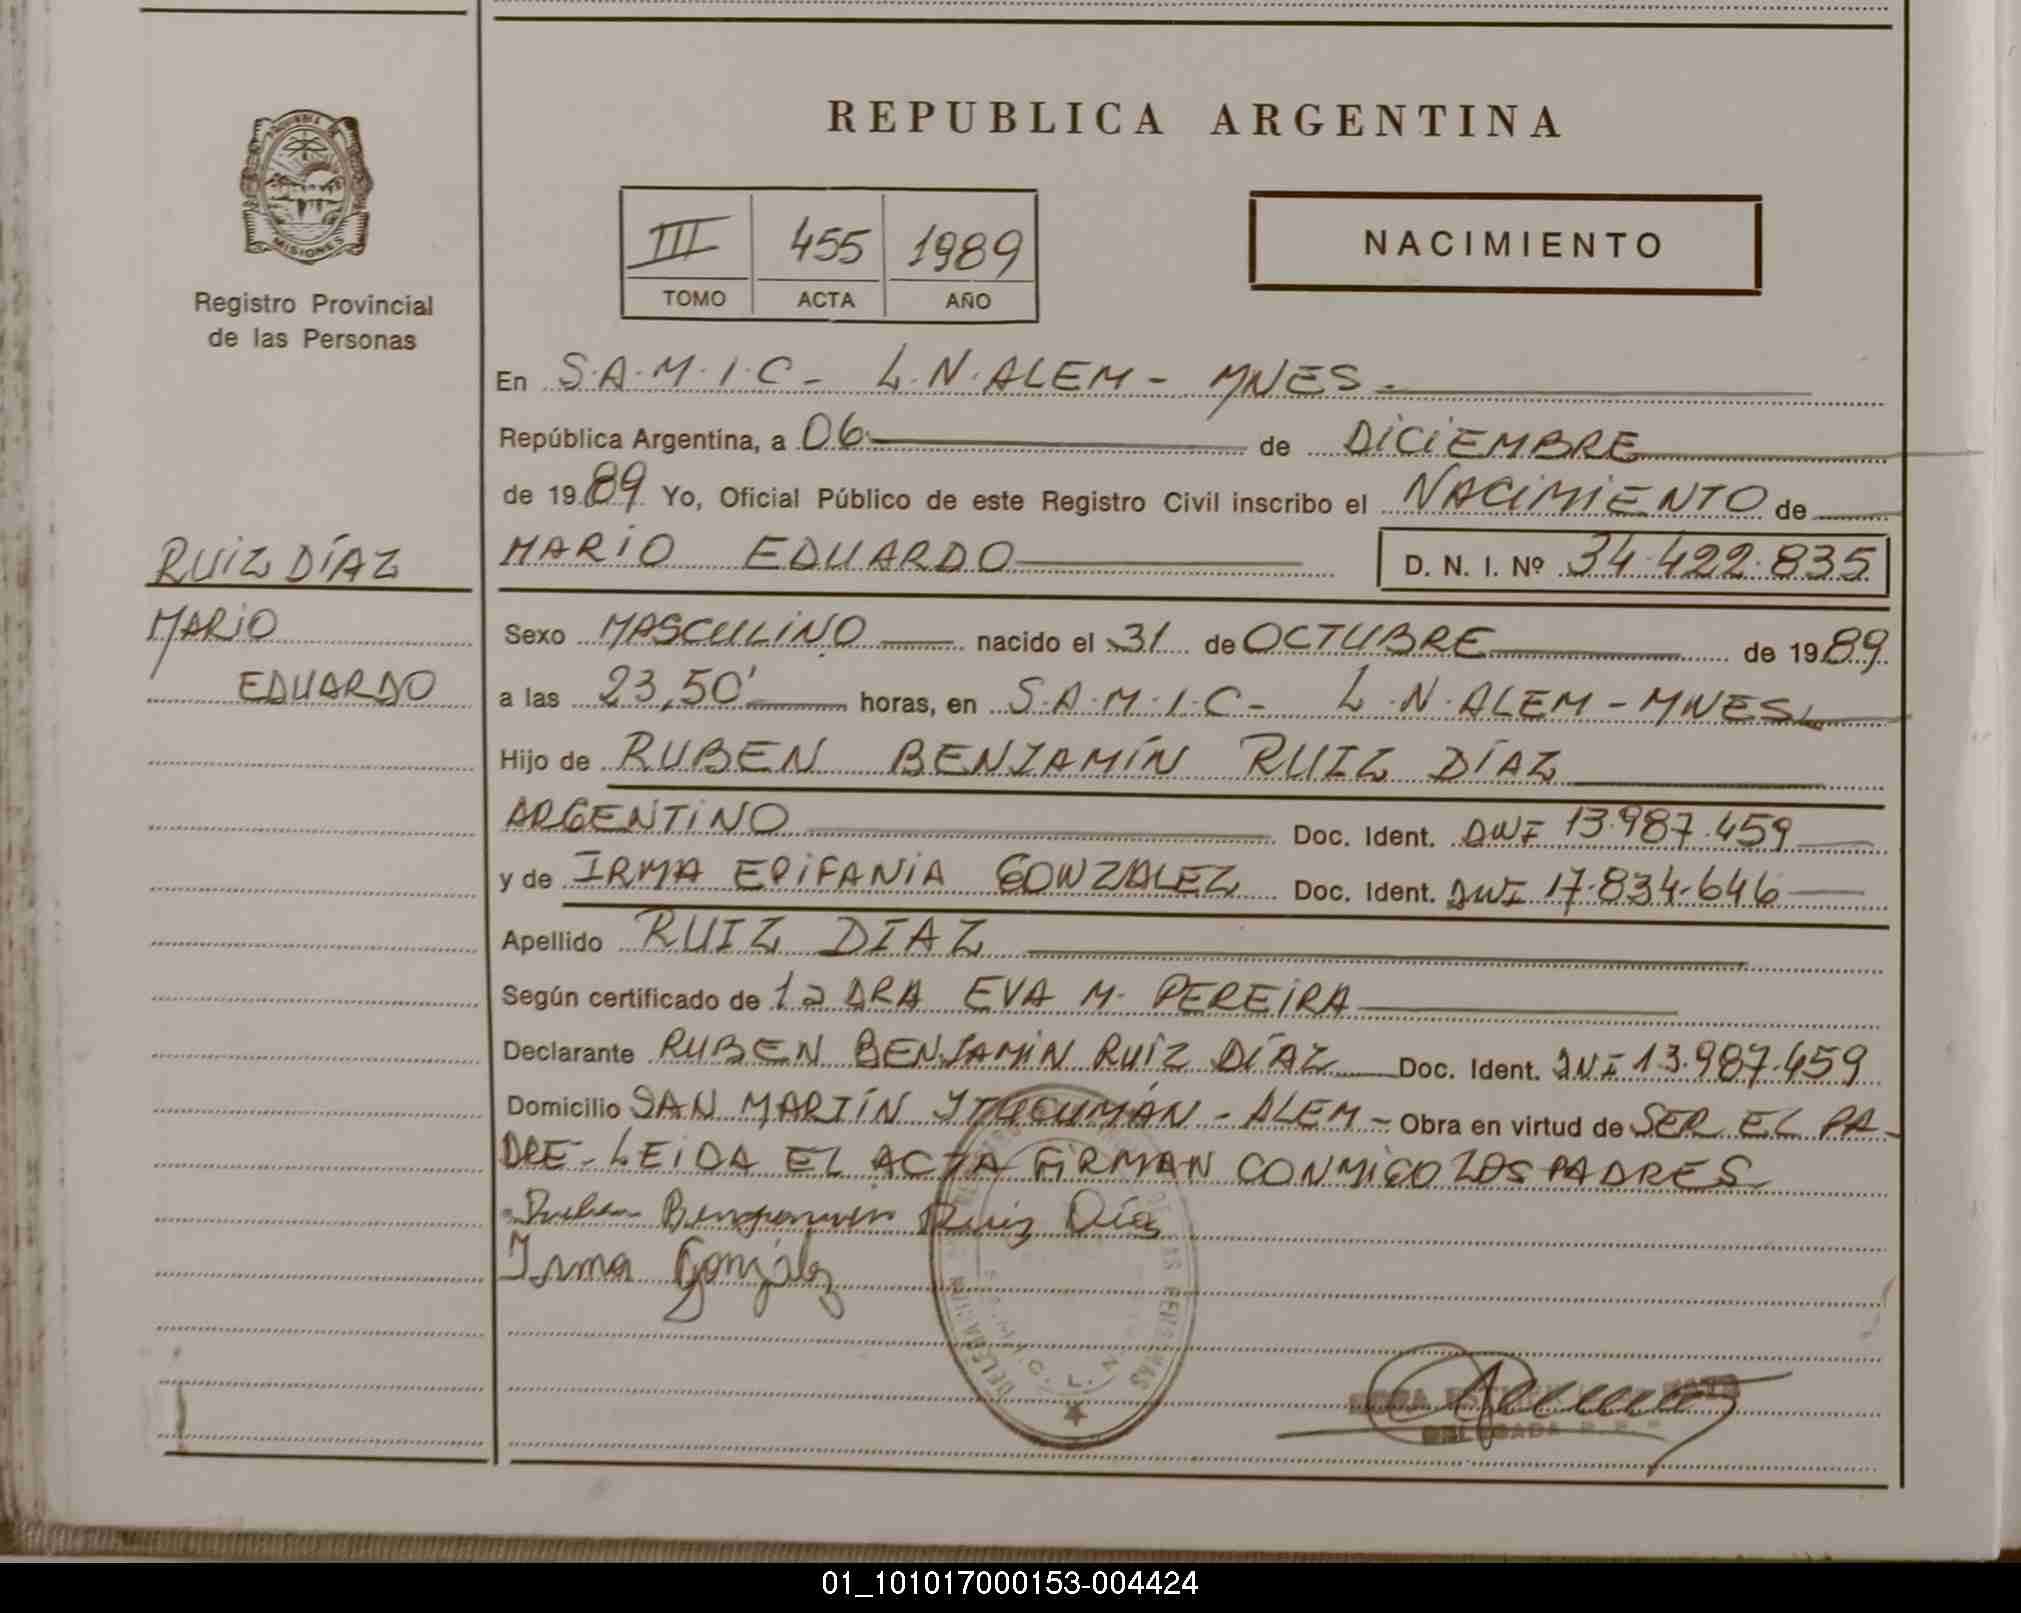 REPUBLICA ARGENTINA
PROVINCIA DE
MISIONES
Registro Provincial
de las Personas
III 455 1989
TOMO ACTA AÑO
NACIMIENTO
En S.A.M.I.C - L.N. ALEM - MNES -
República Argentina, a 06 de DICIEMBRE
de 1989 Yo, Oficial Público de este Registro Civil inscribo el NACIMIENTO de
RUIZ DÍAZ
MARIO
EDUARDO
MARIO EDUARDO D. N. I. Nº 34.422.835
Sexo MASCULINO nacido el 31 de OCTUBRE de 1989
a las 23,50' horas, en S.A.M.I.C - L.N. ALEM - MNES
Hijo de RUBEN BENJAMÍN RUIZ DÍAZ
ARGENTINO Doc. Ident. DNI 13.987.459
y de IRMA EPIFANIA GONZALEZ Doc. Ident. DNI 17.834.646
Apellido RUIZ DIAZ
Según certificado de la DRA EVA M. PEREIRA
Declarante RUBEN BENJAMIN RUÍZ DÍAZ Doc. Ident. DNI 13.987.459
Domicilio SAN MARTÍN Y TUCUMÁN - ALEM - Obra en virtud de SER EL PA-
DRE - LEIDA EL ACTA FIRMAN CONMIGO LOS PADRES
Ruben Benjamin Ruiz Díaz
Irma González
DELEGADA
01_101017000153-004424